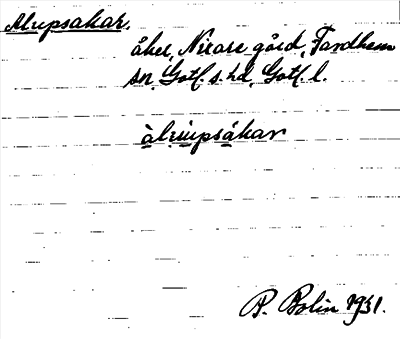 Alrupsakar.
åker, Nixare gård, Fardhem
sn, Gotl. s. hd, Gotl. l.
àlrupsåkar
P. Bolin 1931.